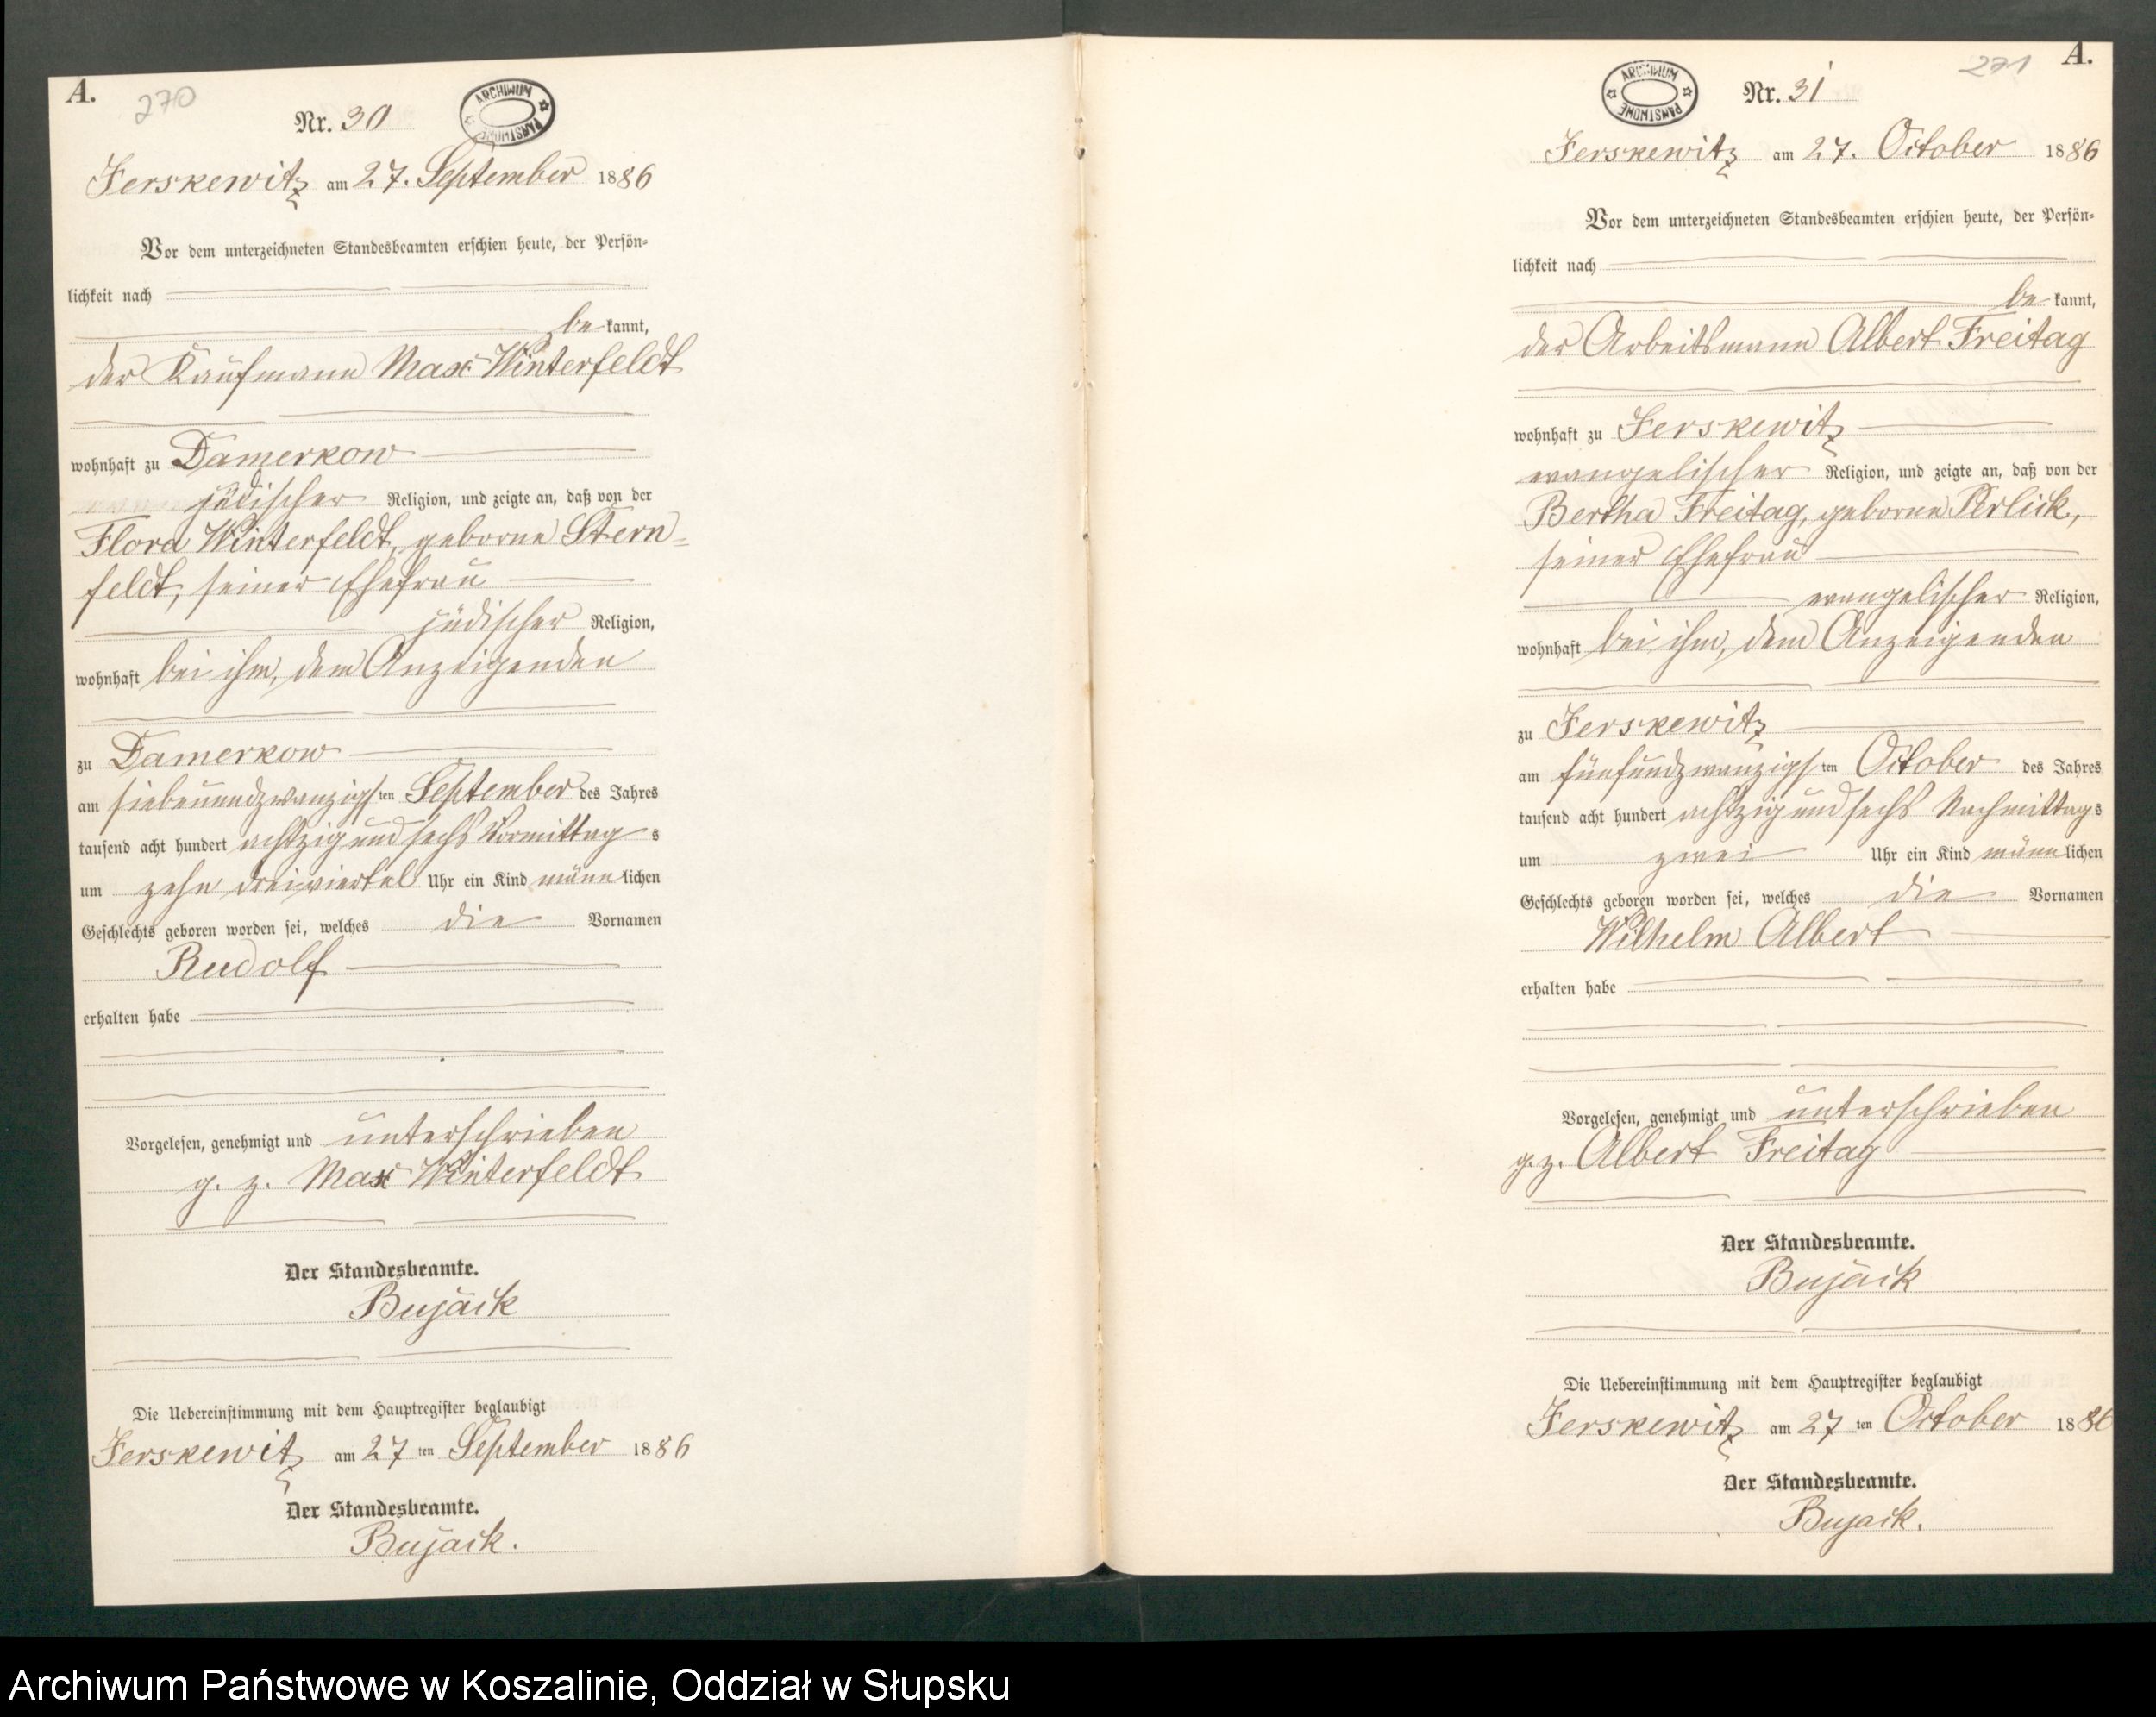 A.
270
Nr. 30
ARCHIWUM PAŃSTWOWE
Jerskewitz am 27. September 1886
Vor dem unterzeichneten Standesbeamten erschien heute, der Persön-
lichkeit nach
be kannt,
der Kaufmann Max Winterfeldt
wohnhaft zu Damerkow
jüdischer Religion, und zeigte an, daß von der
Flora Winterfeldt, geborne Stern-
feldt, seiner Ehefrau
jüdischer Religion,
wohnhaft bei ihm, dem Anzeigenden
zu Damerkow
am siebenundzwanzigsten September des Jahres
tausend acht hundert achtzig und sechs Vormittags
um zehn dreiviertel Uhr ein Kind männlichen
Geschlechts geboren worden sei, welches die Vornamen
Rudolf
erhalten habe
Vorgelesen, genehmigt und unterschrieben
g. z. Max Winterfeldt
Der Standesbeamte.
Bujack
Die Uebereinstimmung mit dem Hauptregister beglaubigt
Jerskewitz am 27 ten September 1886
Der Standesbeamte.
Bujack.
271
A.
ARCHIWUM PAŃSTWOWE
Nr. 31
Jerskewitz am 27. October 1886
Vor dem unterzeichneten Standesbeamten erschien heute, der Persön-
lichkeit nach
be kannt,
der Arbeitsmann Albert Freitag
wohnhaft zu Jerskewitz
evangelischer Religion, und zeigte an, daß von der
Bertha Freitag, geborne Perlick,
seiner Ehefrau
evangelischer Religion,
wohnhaft bei ihm, dem Anzeigenden
zu Jerskewitz
am fünfundzwanzigsten October des Jahres
tausend acht hundert achtzig und sechs Nachmittags
um zwei Uhr ein Kind männlichen
Geschlechts geboren worden sei, welches die Vornamen
Wilhelm Albert
erhalten habe
Vorgelesen, genehmigt und unterschrieben
g. z. Albert Freitag
Der Standesbeamte.
Bujack
Die Uebereinstimmung mit dem Hauptregister beglaubigt
Jerskewitz am 27 ten October 1886
Der Standesbeamte.
Bujack.
Archiwum Państwowe w Koszalinie, Oddział w Słupsku